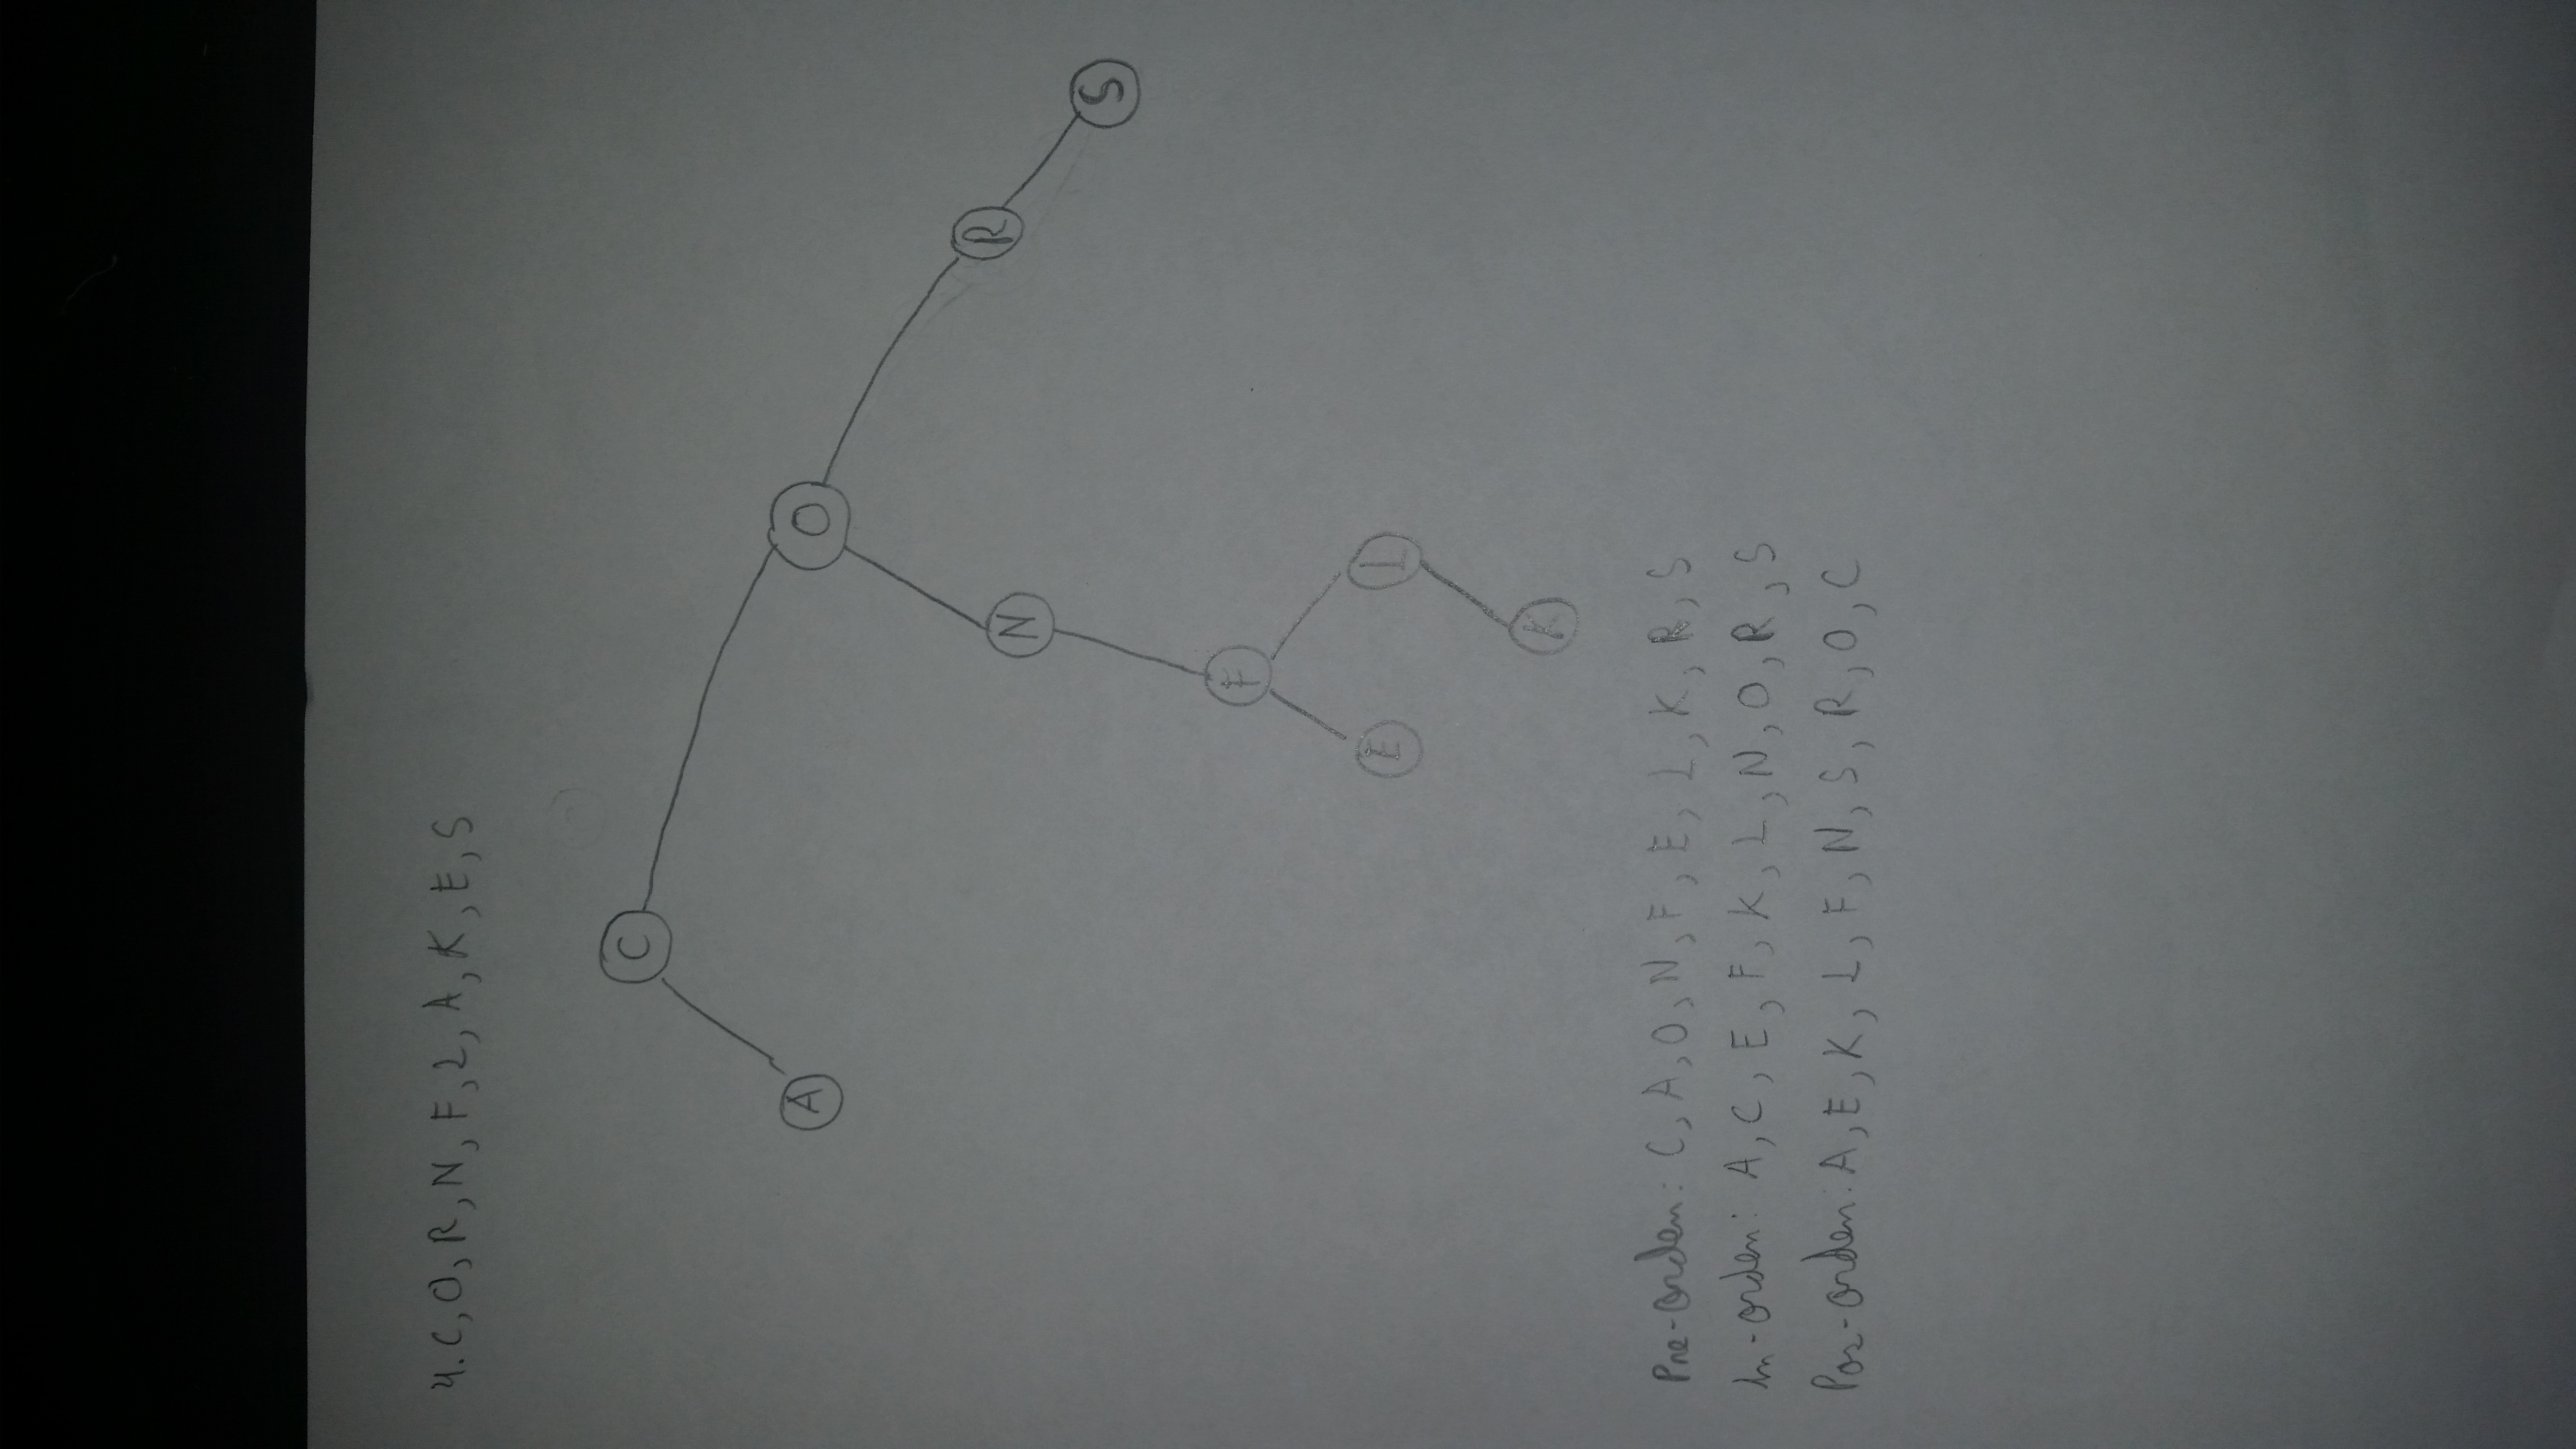 4. C, O, R, N, F, L, A, K, E, S
C
A
O
N
R
S
F
E
L
K
Pre-Orden: C, A, O, N, F, E, L, K, R, S
In-orden: A, C, E, F, K, L, N, O, R, S
Pos-Orden: A, E, K, L, F, N, S, R, O, C